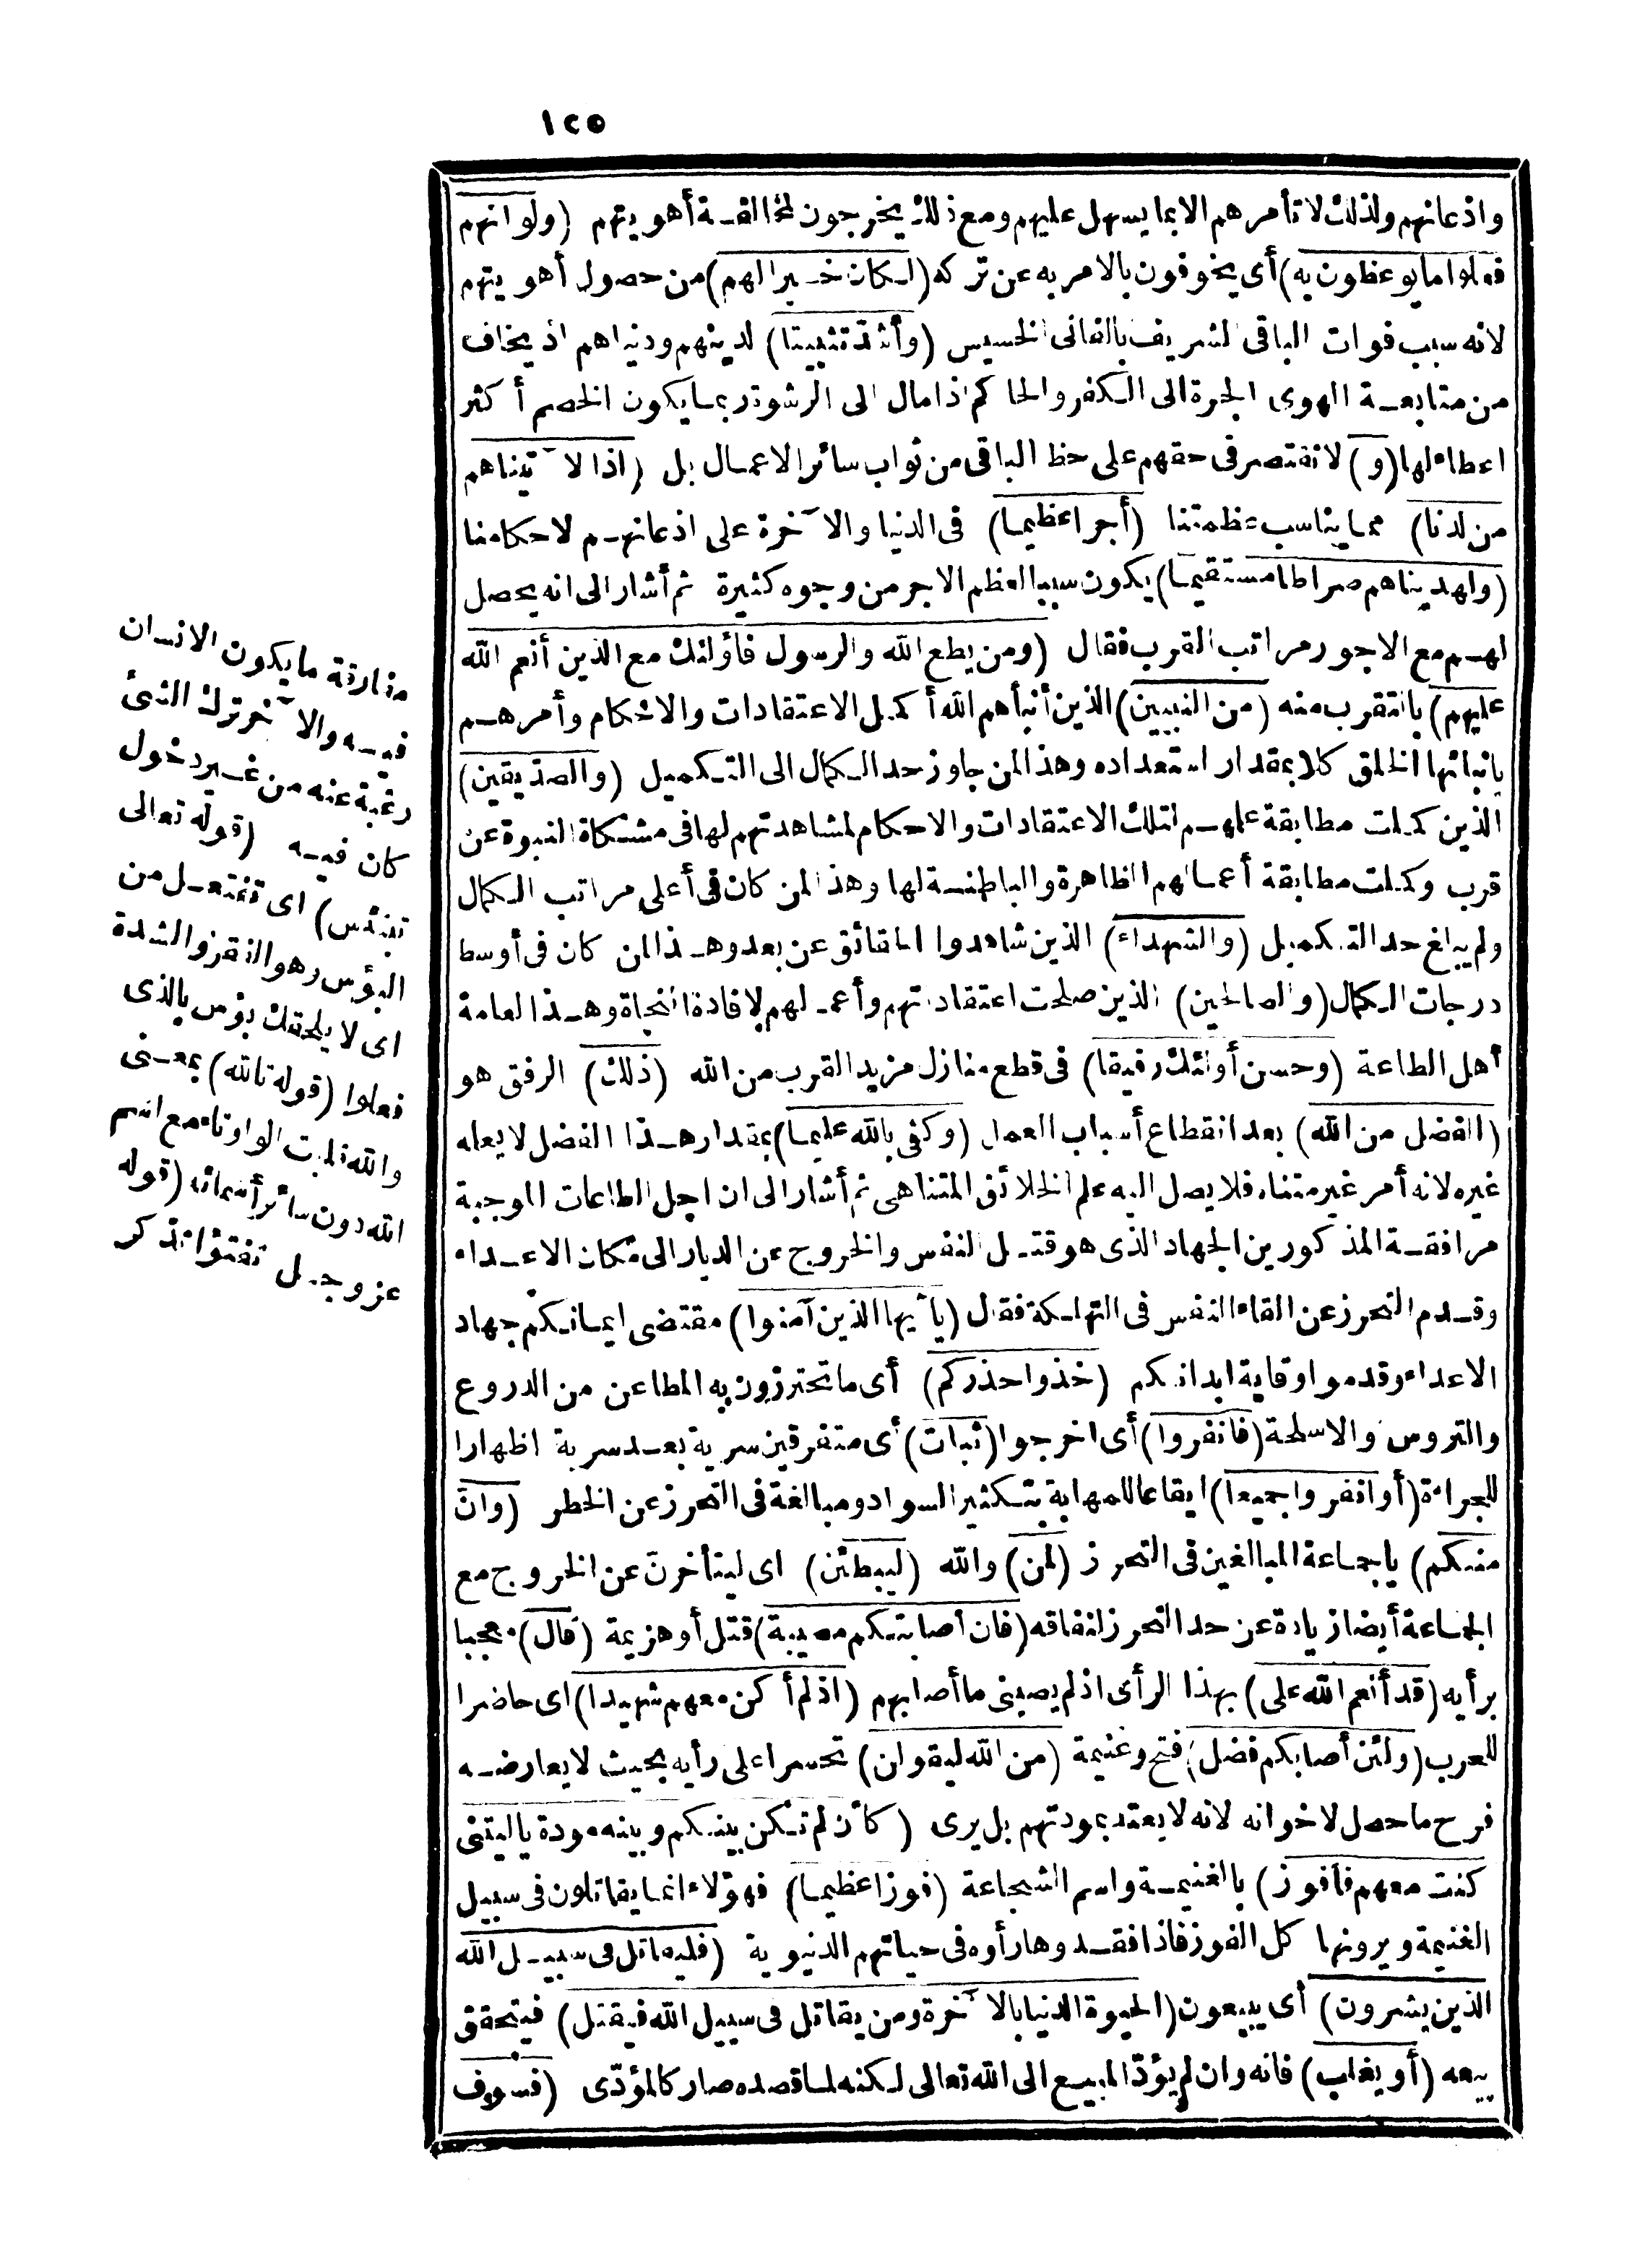 ١٥٥
واذعانهم ولذلك لا تأمرهم الا بما يسهل عليهم ومع ذلك يخرجون لمخالفة أهويتهم (ولو انهم
فعلوا ما يوعظون به) أى يخوفون بالامر به عن تركه (لكان خيرا لهم) من حصول أهويتهم
لانه سبب فوات الباقى الشريف بالفانى الخسيس (وأشدّ تثبيتا) لدينهم ودنياهم اذ يخاف
من متابعة الهوى الجرة الى الكفر والحاكم اذا مال الى الرشوة ربما يكون الخصم أكثر
اعطاء لها (و) لا نقتصر فى حقهم على حظ الباقى من ثواب سائر الاعمال بل (اذا لآتيناهم
من لدنا) مما يناسب عظمتنا (أجرا عظيما) فى الدنيا والآخرة على اذعانهم لاحكامنا
(ولهديناهم صراطا مستقيما) يكون سببا لعظم الاجر من وجوه كثيرة ثم أشار الى انه يحصل
لهم مع الاجور مراتب القرب فقال (ومن يطع الله والرسول فأولئك مع الذين أنعم الله
عليهم) بالتقرب منه (من النبيين) الذين أنبأهم الله أكمل الاعتقادات والاحكام وأمرهم
بانبائها الخلق كلا بمقدار استعداده وهذا لمن جاوز حد الكمال الى التكميل (والصدّيقين)
الذين كملت مطابقة علمهم لتلك الاعتقادات والاحكام لمشاهدتهم لها فى مشكاة النبوة عن
قرب وكملت مطابقة أعمالهم الظاهرة والباطنة لها وهذا لمن كان فى أعلى مراتب الكمال
ولم يبلغ حد التكميل (والشهداء) الذين شاهدوا الحقائق عن بعد وهذا لمن كان فى أوسط
درجات الكمال (والصالحين) الذين صلحت اعتقاداتهم وأعمالهم لافادة النجاة وهذا لعامة
أهل الطاعة (وحسن أولئك رفيقا) فى قطع منازل مزيد القرب من الله (ذلك) الرفق هو
(الفضل من الله) بعد انقطاع أسباب العمل (وكفى بالله عليما) بمقدار هذا الفضل لا يعلمه
غيره لانه أمر غير متناه فلا يصل اليه علم الخلائق المتناهى ثم أشار الى ان اجل الطاعات الموجبة
مرافقة المذكورين الجهاد الذى هو قتل النفس والخروج عن الديار الى مكان الاعداء
وقدم التحرز عن القاء النفس فى التهلكة فقال (يا أيها الذين آمنوا) مقتضى ايمانكم جهاد
الاعداء وقدموا وقاية ابدانكم (خذوا حذركم) أى ما تحترزون به المطاعن من الدروع
والتروس والاسلحة (فانفروا) أى اخرجوا (ثبات) أى متفرقين سرية بعد سرية اظهارا
للجراءة (أو انفروا جميعا) ايقاعا للمهابة بتكثير السواد ومبالغة فى التحرز عن الخطر (وانّ
منكم) يا جماعة المبالغين فى التحرز (لمن) والله (ليبطئن) اى ليتأخرنّ عن الخروج مع
الجماعة أيضا زيادة عن حد التحرز لنفاقه (فان أصابتكم مصيبة) قتل أو هزيمة (قال) معجبا
برأيه (قد أنعم الله على) بهذا الرأى اذ لم يصبنى ما أصابهم (اذ لم أكن معهم شهيدا) اى حاضرا
للحرب (ولئن أصابكم فضل) فتح وغنيمة (من الله ليقولن) تحسرا على رأيه بحيث لا يعارضه
فرح ما حصل لاخوانه لانه لا يعتد بمودتهم بل يرى (كأن لم تكن بينكم وبينه مودة يا ليتنى
كنت معهم فأفوز) بالغنيمة واسم الشجاعة (فوزا عظيما) فهؤلاء انما يقاتلون فى سبيل
الغنيمة ويرونها كل الفوز فاذا فقدوها رأوه فى حياتهم الدنيوية (فليقاتل فى سبيل الله
الذين يشرون) أى يبيعون (الحيوة الدنيا بالآخرة ومن يقاتل فى سبيل الله فيقتل) فيتحقق
بيعه (أو يغلب) فانه وان لم يؤدّ المبيع الى الله تعالى لكنه لما قصده صار كالمؤدّى (فسوف
مفارقة ما يكون الانسان
فيه والآخر ترك الشئ
رغبة عنه من غير دخول
كان فيه (قوله تعالى
تبتئس) اى تفتعل من
البؤس وهو الفقر والشدة
اى لا يلحقك بؤس بالذى
فعلوا (قوله تالله) بمعنى
والله قلبت الواو تاء مع اسم
الله دون سائر أسمائه (قوله
عز وجل تفتؤا تذكر